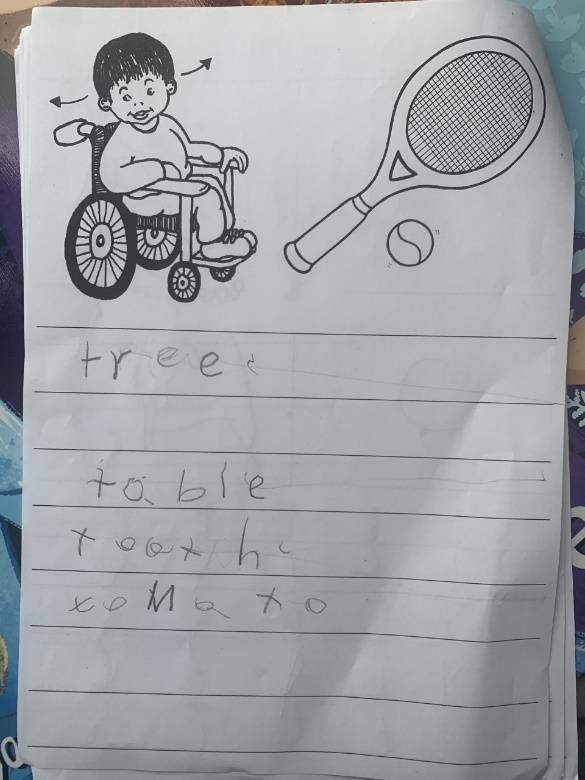 tree
table
tooth
toMato